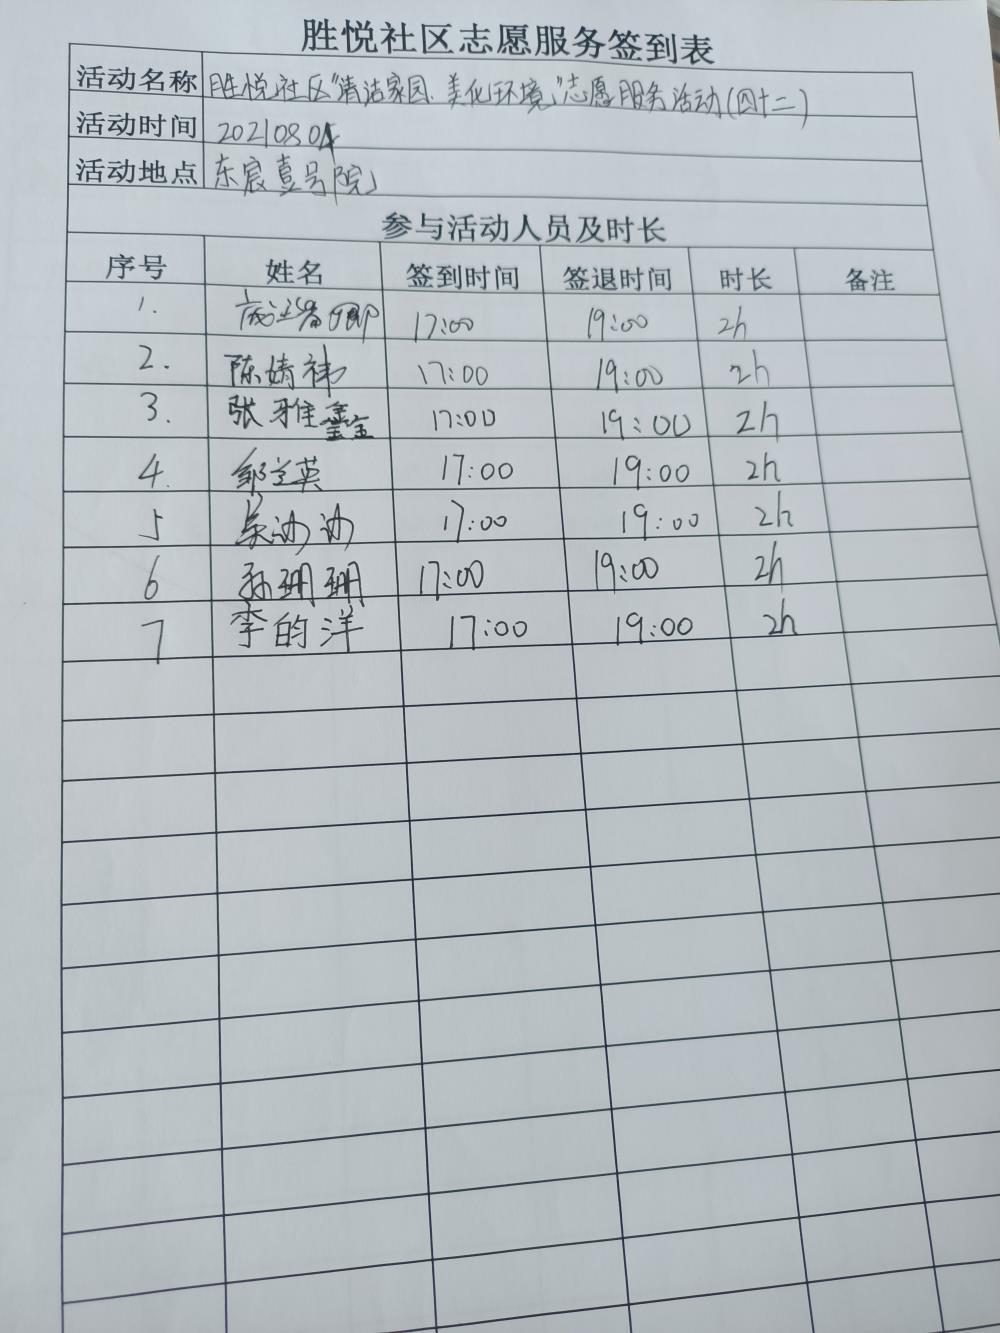 胜悦社区志愿服务签到表
活动名称 胜悦社区"清洁家园、美化环境"志愿服务活动(四十二)
活动时间 20210804
活动地点 东宸壹号院
参与活动人员及时长
序号 姓名 签到时间 签退时间 时长 备注
1. 17:00 19:00 2h
2. 陈婧祎 17:00 19:00 2h
3. 张雅鑫 17:00 19:00 2h
4. 邹兰英 17:00 19:00 2h
5 吴 17:00 19:00 2h
6 孙珊珊 17:00 19:00 2h
7 李昀洋 17:00 19:00 2h